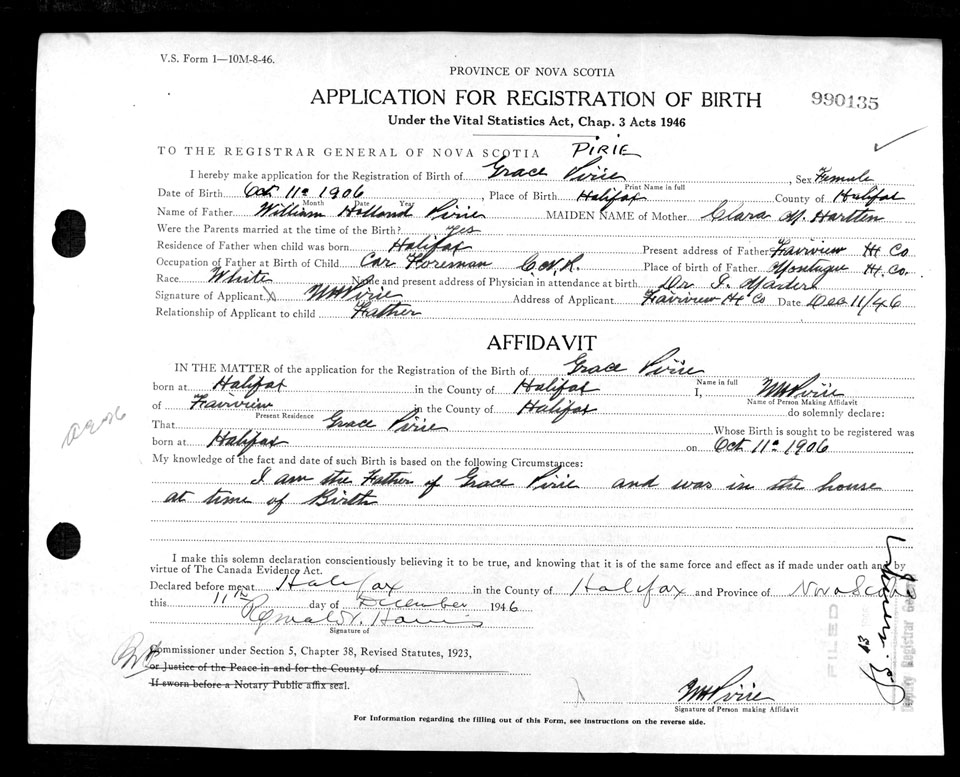 V.S. Form 1—10M-8-46.
PROVINCE OF NOVA SCOTIA
APPLICATION FOR REGISTRATION OF BIRTH
990135
Under the Vital Statistics Act, Chap. 3 Acts 1946
TO THE REGISTRAR GENERAL OF NOVA SCOTIA PIRIE
I hereby make application for the Registration of Birth of Grace Pirie, Sex Female
Print Name in full
Date of Birth Oct 11th 1906, Place of Birth Halifax County of Halifax
Month Date Year
Name of Father William Holland Pirie MAIDEN NAME of Mother Clara M. Hartlen
Were the Parents married at the time of the Birth? Yes
Residence of Father when child was born Halifax Present address of Father Fairview Hx Co
Occupation of Father at Birth of Child Car Foreman C.N.R. Place of birth of Father Montague Hx. Co.
Race White Name and present address of Physician in attendance at birth Dr.
Signature of Applicant X WH Pirie Address of Applicant Fairview Hx Co Date Dec 11/46
Relationship of Applicant to child Father
AFFIDAVIT
IN THE MATTER of the application for the Registration of the Birth of Grace Pirie
Name in full
born at Halifax in the County of Halifax I, WH Pirie
Name of Person Making Affidavit
of Fairview in the County of Halifax do solemnly declare:
Present Residence
That Grace Pirie Whose Birth is sought to be registered was
born at Halifax on Oct 11th 1906
My knowledge of the fact and date of such Birth is based on the following Circumstances:
I am the Father of Grace Pirie and was in the house
at time of Birth
I make this solemn declaration conscientiously believing it to be true, and knowing that it is of the same force and effect as if made under oath and by
virtue of The Canada Evidence Act.
Declared before me at Halifax in the County of Halifax and Province of Nova Scotia
this 11th day of December 1946
Reginald V. Harris
Signature of
Commissioner under Section 5, Chapter 38, Revised Statutes, 1923,
or Justice of the Peace in and for the County of
If sworn before a Notary Public affix seal.
WH Pirie
Signature of Person making Affidavit
For Information regarding the filling out of this Form, see instructions on the reverse side.
FILED
Deputy Registrar Ge